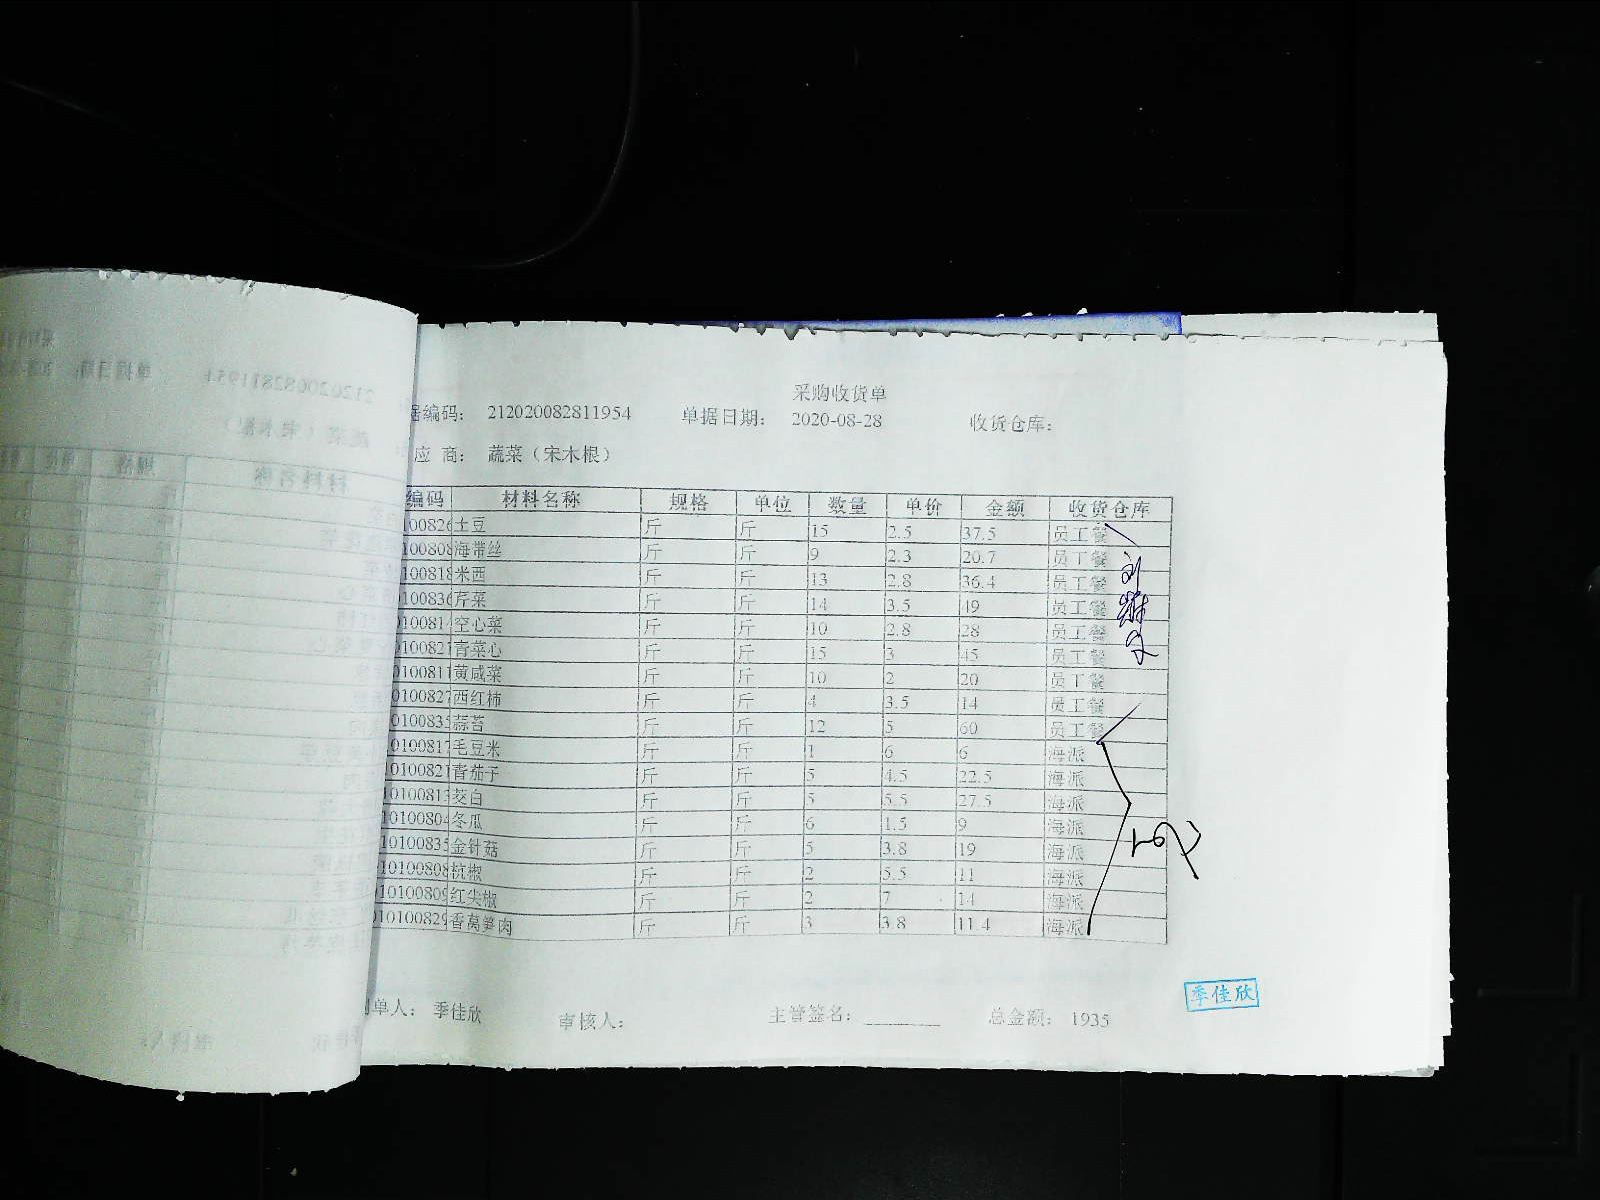 采购收货单
据编码： 212020082811954 单据日期： 2020-08-28 收货仓库：
应 商： 蔬菜（宋木根）
编码 材料名称 规格 单位 数量 单价 金额 收货仓库
100826 土豆 斤 斤 15 2.5 37.5 员工餐
100808 海带丝 斤 斤 9 2.3 20.7 员工餐
100818 米西 斤 斤 13 2.8 36.4 员工餐
100836 芹菜 斤 斤 14 3.5 49 员工餐
10081 空心菜 斤 斤 10 2.8 28 员工餐
0100821 青菜心 斤 斤 15 3 45 员工餐
0100811 黄咸菜 斤 斤 10 2 20 员工餐
0100827 西红柿 斤 斤 4 3.5 14 员工餐
0100835 蒜苔 斤 斤 12 5 60 员工餐
0100817 毛豆米 斤 斤 1 6 6 海派
0100821 青茄子 斤 斤 5 4.5 22.5 海派
10100813 茭白 斤 斤 5 5.5 27.5 海派
10100804 冬瓜 斤 斤 6 1.5 9 海派
10100835 金针菇 斤 斤 5 3.8 19 海派
10100808 杭椒 斤 斤 2 5.5 11 海派
10100809 红尖椒 斤 斤 2 7 14 海派
10100829 香莴笋肉 斤 斤 3 3.8 11.4 海派
制单人： 季佳欣 审核人： 主管签名： 总金额： 1935
季佳欣